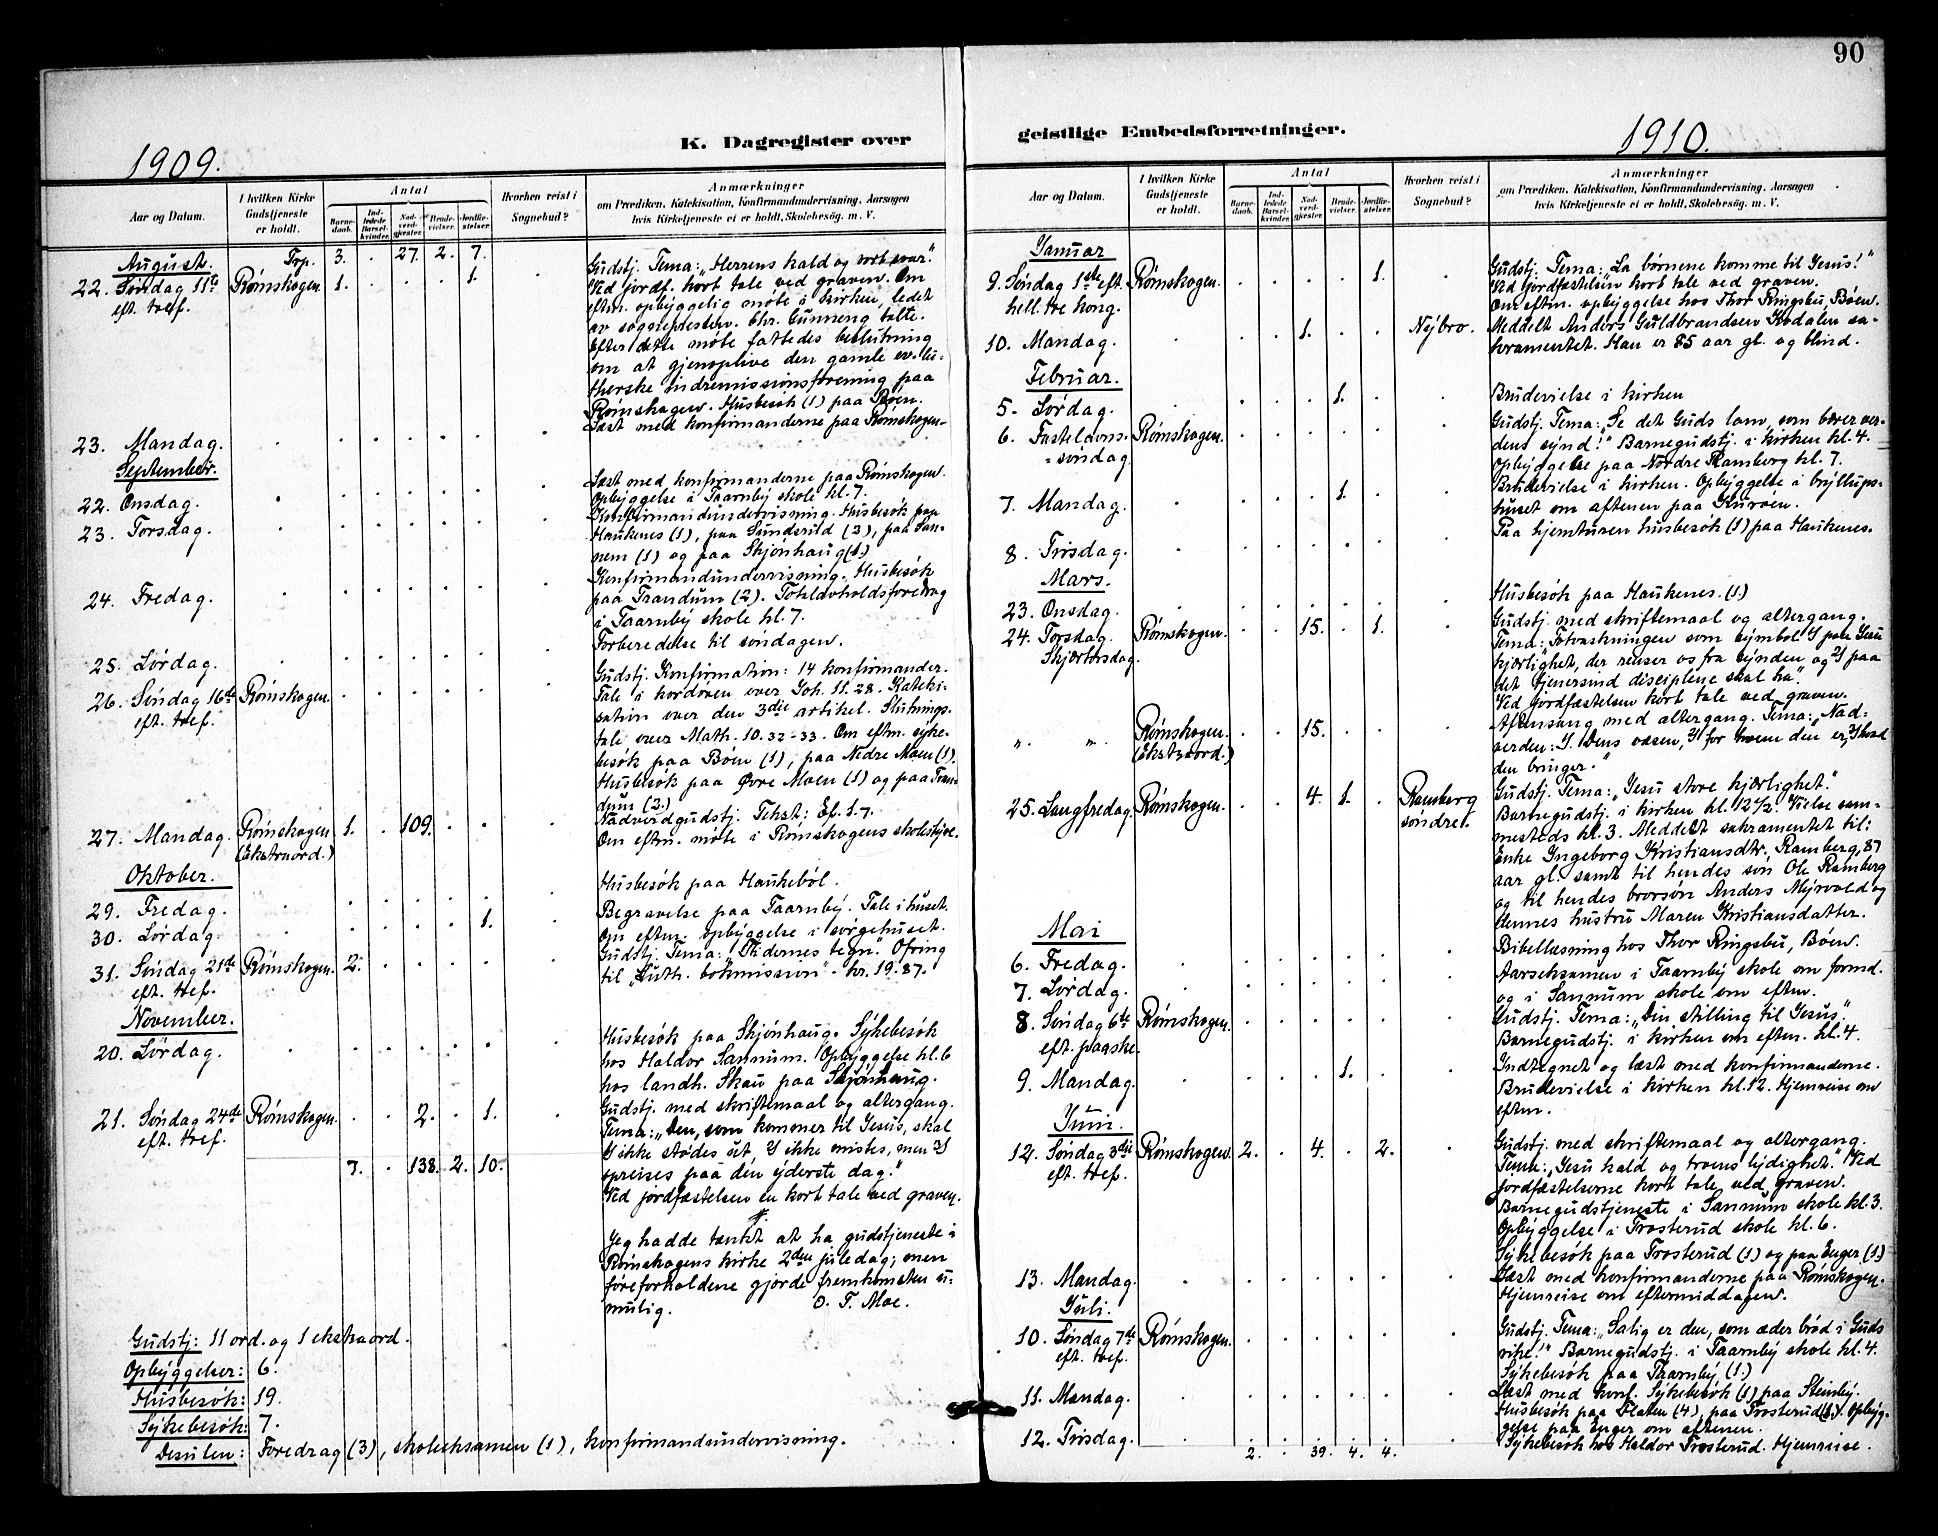 90
K. Dagregister over
1909.
Aar og Datum.
I hvilken Kirke
Gudstjeneste
er holdt.
Antal
Barne-
daab.
Ind-
ledede
Barsel-
kvinder.
Nad-
verd-
gjester.
Brude-
vielser.
Jordfæ-
stelser.
Hvorhen reist i
Sognebud?
Anmærkninger
om Prædiken, Katekisation, Konfirmandundervisning, Aarsagen
hvis Kirketjeneste ei er holdt, Skolebesøg. m. V.
August. Trp. 3. . 27. 2. 7.
22. Søndag 11te Rømskogen. 1. 1.
eft. tref.
Gudstj. Tema: „Herrens kald og vort svar."
Ved jordf. kort tale ved graven. Om
eftm. opbyggelig møte i kirken, ledet
av sognepresten. Chr. Gunneng talte.
Efter dette møte fattedes beslutning
om at gjenoplive den gamle ev. lu-
therske indremissionsforening paa
Rømskogen. Husbesøk (1) paa Bøen.
23. Mandag.
Læst med konfirmanderne paa Rømskogen.
September.
22. Onsdag.
Læst med konfirmanderne paa Rømskogen.
Opbyggelse i Taarnby skole kl. 7.
23. Torsdag.
Konfirmandundervisning. Husbesøk paa
Haukenes (1), paa Sundsrud (3), paa San-
nem (1) og paa Skjønhaug (1.)
24. Fredag.
Konfirmandundervisning. Husbesøk
paa Trandum (2). Totalavholdsforedrag
i Taarnby skole kl. 7.
25. Lørdag.
Forberedelse til søndagen.
26. Søndag 16de Rømskogen.
eft. tref.
Gudstj. Konfirmation: 14 konfirmander.
Tale i kordøren over Joh. 11. 28. Kateki-
sation over den 3die artikel. Slutnings-
tale over Math. 10. 32-33. Om eftm. syke-
besøk paa Bøen (1), paa Nedre Moen (1).
Husbesøk paa Øvre Moen (1) og paa Tran-
dum (2.)
27. Mandag. Rømskogen 1. . 109.
(Ekstraord.)
Nadverdgudstj. Tekst: Ef. 1. 7.
Om eftm. møte i Rømskogens skolestyre.
Oktober.
29. Fredag.
Husbesøk paa Haukebøl.
30. Lørdag. 1.
Begravelse paa Taarnby. Tale i huset.
Om eftm. opbyggelse i sørgehuset.
31. Søndag 21de Rømskogen. 2.
eft. tref.
Gudstj. Tema: „Tidernes tegn". Ofring
til „Luth. bokmission" - kr. 19.87.
November.
20. Lørdag.
Husbesøk paa Skjønhaug. Sykebesøk
hos Haldor Sannum. Opbyggelse kl. 6
hos landh. Skau paa Skjønhaug.
21. Søndag 24de Rømskogen. . . 2. . 1.
eft. tref.
Gudstj. med skriftemaal og altergang.
Tema: „Den, som kommer til Jesus, skal
1) ikke stødes ut, 2) ikke mistes, men 3)
opreises paa den yderste dag."
Ved jordfæstelsen en kort tale ved graven.
7. . 138. 2. 10.
Jeg hadde tænkt at ha gudstjeneste i
Rømskogens kirke 2den juledag; men
føreforholdene gjorde fremkomsten u-
mulig. O. T. Moe.
Gudstj: 11 ord. og 1 ekstraord.
Opbyggelser: 6.
Husbesøk: 19.
Sykebesøk: 7.
Desuten: Foredrag (3), skoleeksamen (1), konfirmandundervisning.
geistlige Embedsforretninger.
1910.
Aar og Datum.
I hvilken Kirke
Gudstjeneste
er holdt.
Antal
Barne-
daab.
Ind-
ledede
Barsel-
kvinder.
Nad-
verd-
gjester.
Brude-
vielser.
Jordfæ-
stelser.
Hvorhen reist i
Sognebud?
Anmærkninger
om Prædiken, Katekisation, Konfirmandundervisning, Aarsagen
hvis Kirketjeneste ei er holdt, Skolebesøg. m. V.
Januar
9. Søndag 1ste eft. Rømskogen. 1.
hell. tre kong.
Gudstj. Tema: „La børnene komme til Jesus!"
Ved jordfæstelsen kort tale ved graven.
Om eftm. opbyggelse hos Thor Ringsbu, Bøen.
10. Mandag. 1. Nybro.
Meddelt Anders Guldbrandsen Kodalen sa-
kramentet. Han er 85 aar gl. og blind.
Februar.
5. Lørdag. 1.
Brudevielse i kirken
6. Fastelavns- Rømskogen.
søndag.
Gudstj. Tema: „Se det Guds lam, som bærer ver-
dens synd!" Barnegudstj. i kirken kl. 4.
Opbyggelse paa Nordre Ramberg kl. 7.
7. Mandag. 1.
Brudevielse i kirken. Opbyggelse i bryllups-
huset om aftenen paa Kurøen.
8. Tirsdag.
Paa hjemturen husbesøk (1) paa Haukenes.
Mars.
23. Onsdag.
Husbesøk paa Haukenes. (1)
24. Torsdag. Rømskogen. 15. 1.
Skjærtorsdag.
Gudstj. med skriftemaal og altergang.
Tema: „Fotvaskningen som symbol 1) paa Jesu
kjærlighet, der renser os fra synden" og 2) paa
det tjenersind disciplene skal ha."
Ved jordfæstelsen kort tale ved graven.
„ „ Rømskogen. 15.
(Ekstraord.)
Aftensang med altergang. Tema: „Nad-
verden: 1) Dens væsen, 2) for hvem den er, 3) hvad
den bringer."
25. Langfredag. Rømskogen. 4. 1. Ramberg
søndre.
Gudstj. Tema: „Jesu store kjærlighet."
Barnegudstj. i kirken kl. 12 1/2. Vielse sam-
mesteds kl. 3. Meddelt sakramentet til:
Enke Ingeborg Kristiansdtr. Ramberg, 87
aar gl. samt til hendes søn Ole Ramberg
og til hendes brorsøn Anders Myrvold og
dennes hustru Maren Kristiansdatter.
Mai
6. Fredag.
Bibellæsning hos Thor Ringsbu, Bøen.
7. Lørdag.
Aarseksamen i Taarnby skole om formd.
og i Sannum skole om eftm.
8. Søndag 6te Rømskogen.
eft. paaske.
Gudstj. Tema: „Din stilling til Jesus."
Barnegudstj. i kirken om eftm. kl. 4.
9. Mandag. 1.
Indtegnet og læst med konfirmanderne.
Brudevielse i kirken kl. 12. Hjemreise om
eftm.
Juni.
12. Søndag 3die Rømskogen. 2. . 4. . 2.
eft. tref.
Gudstj. med skriftemaal og altergang.
Tema: „Jesu kald og troens lydighet." Ved
jordfæstelserne kort tale ved graven.
Barnegudstjeneste i Sannum skole kl. 3.
Opbyggelse i Trosterud skole kl. 6.
Sykebesøk paa Trosterud (1) og paa Enger (1.)
13. Mandag.
Læst med konfirmanderne paa Rømskogen.
Hjemreise om eftermiddagen.
Juli.
10. Søndag 7de Rømskogen.
eft. tref.
Gudstj. Tema: „Salig er den, som æder brød i Guds
rike!" Barnegudstj. i Taarnby skole kl. 4.
Sykebesøk paa Taarnby (1.)
11. Mandag.
Læst med konf. Sykebesøk (1) paa Steinby.
Husbesøk paa Flaten (4), paa Trosterud (1). Opbyg-
gelse paa Enger om aftenen.
12. Tirsdag.
Sykebesøk hos Haldor Trosterud. Hjemreise.
2. 39. 4. 4.